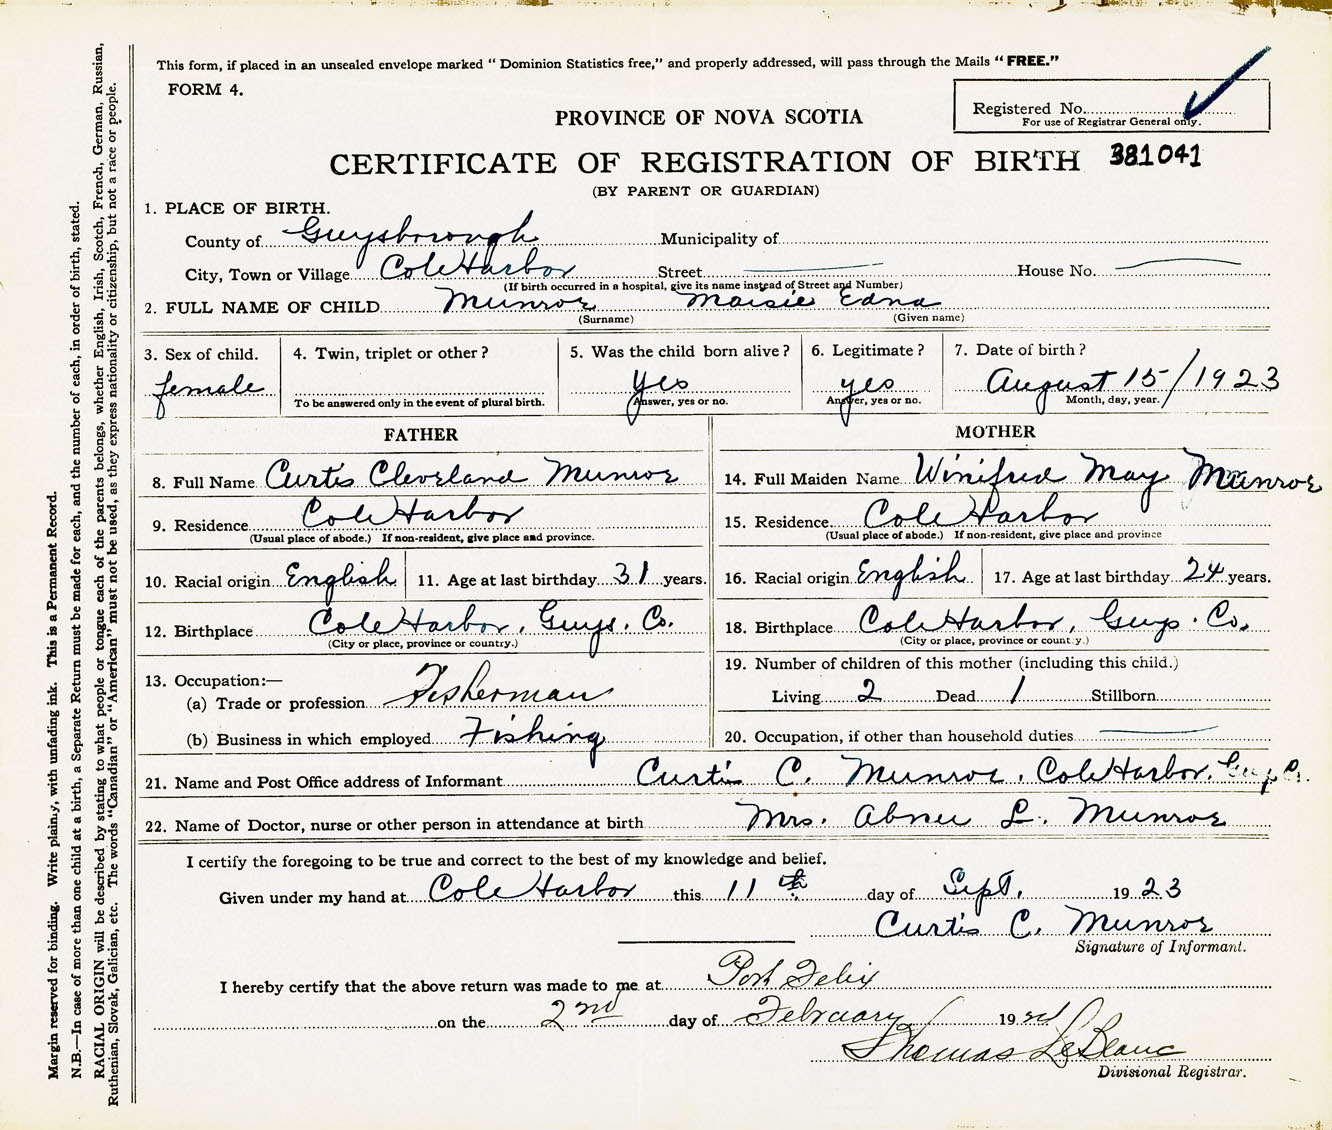 This form, if placed in an unsealed envelope marked " Dominion Statistics free," and properly addressed, will pass through the Mails " FREE."
FORM 4.
Registered No.
For use of Registrar General only.
PROVINCE OF NOVA SCOTIA
CERTIFICATE OF REGISTRATION OF BIRTH 381041
(BY PARENT OR GUARDIAN)
1. PLACE OF BIRTH.
County of Guysborough Municipality of
City, Town or Village Cole Harbor Street House No.
(If birth occurred in a hospital, give its name instead of Street and Number)
2. FULL NAME OF CHILD Munroe Maisie Edna
(Surname) (Given name)
3. Sex of child. 4. Twin, triplet or other ? 5. Was the child born alive ? 6. Legitimate ? 7. Date of birth ?
female yes yes August 15/1923
To be answered only in the event of plural birth. Answer, yes or no. Answer, yes or no. Month, day, year.
FATHER MOTHER
8. Full Name Curtis Cleveland Munroe 14. Full Maiden Name Winifred May Munroe
9. Residence Cole Harbor 15. Residence Cole Harbor
(Usual place of abode.) If non-resident, give place and province. (Usual place of abode.) If non-resident, give place and province
10. Racial origin English 11. Age at last birthday 31 years. 16. Racial origin English 17. Age at last birthday 24 years.
12. Birthplace Cole Harbor, Guys. Co. 18. Birthplace Cole Harbor, Guys. Co.
(City or place, province or country.) (City or place, province or country.)
13. Occupation:— 19. Number of children of this mother (including this child.)
(a) Trade or profession Fisherman Living 2 Dead 1 Stillborn
(b) Business in which employed Fishing 20. Occupation, if other than household duties
21. Name and Post Office address of Informant Curtis C. Munroe, Cole Harbor, Guys Co.
22. Name of Doctor, nurse or other person in attendance at birth Mrs. Abner L. Munroe
I certify the foregoing to be true and correct to the best of my knowledge and belief.
Given under my hand at Cole Harbor this 11th day of Sept. 1923
Curtis C. Munroe
Signature of Informant.
I hereby certify that the above return was made to me at Port Felix
on the 2nd day of February 1924
Thomas LeBlanc
Divisional Registrar.
Margin reserved for binding. Write plainly, with unfading ink. This is a Permanent Record.
N.B.—In case of more than one child at a birth, a Separate Return must be made for each, and the number of each, in order of birth, stated.
RACIAL ORIGIN will be described by stating to what people or tongue each of the parents belongs, whether English, Irish, Scotch, French, German, Russian,
Ruthenian, Slovak, Galician, etc. The words "Canadian" or "American" must not be used, as they express nationality or citizenship, but not a race or people.